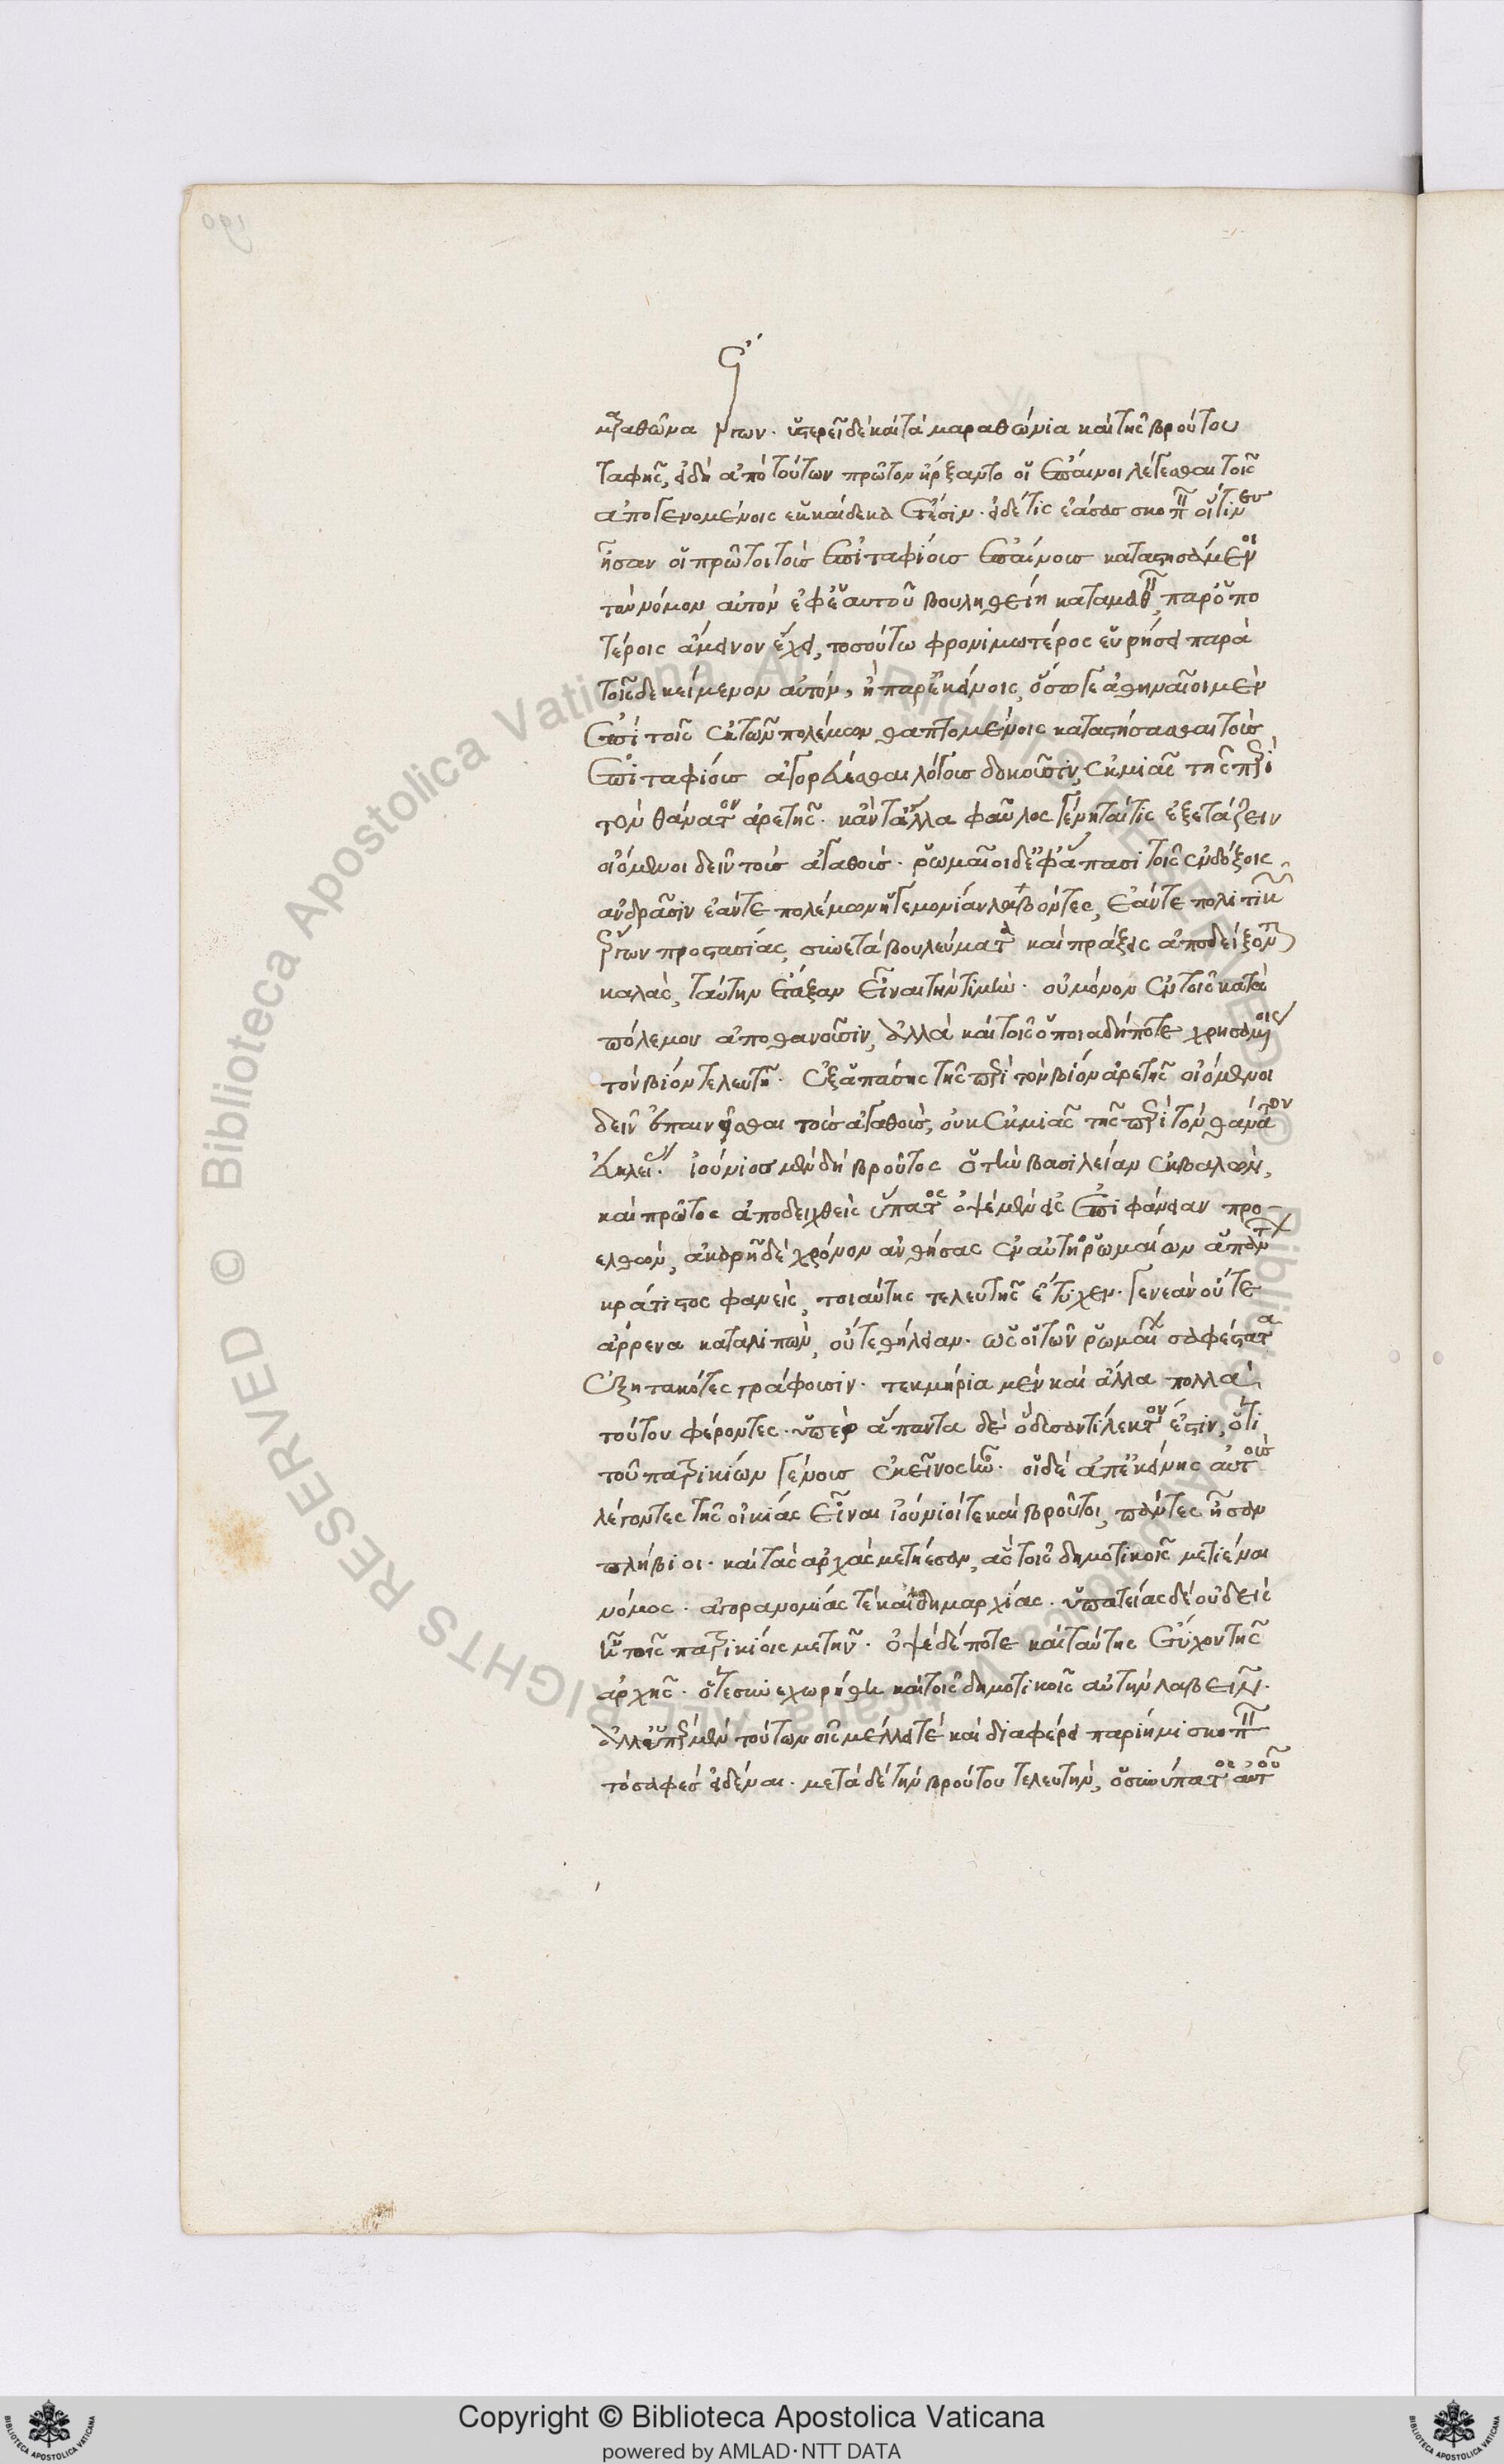 μαραθῶνα ρίπτων. ὑστερεῖ δὲ καὶ τὰ μαραθώνια καὶ τῆς βρούτου
ταφῆς, εἰ δὴ ἀπὸ τούτων πρῶτον ἤρξαντο οἱ ἔπαινοι λέγεσθαι τοῖς
ἀπογενομένοις ἑκκαίδεκα ἔτεσιν. εἰ δέ τις ἐάσας σκοπεῖν οἵτινες
ἦσαν οἱ πρῶτοι τοὺς ἐπιταφίους ἐπαίνους καταστησάμενοι
τὸν νόμον αὐτὸν ἐφ' ἑαυτοῦ βουληθείη καταμαθεῖν, παρ' ὁπο
τέροις ἄμεινον ἔχει, τοσούτω φρονιμωτέρος εὑρήσει παρὰ
τοῖσδε κείμενον αὐτόν, ἢ παρ' ἐκείνοις, ὅσω γε ἀθηναῖοι μὲν
ἐπὶ τοῖς ἐκ τῶν πολέμων θαπτομένοις καταστήσασθαι τοὺς
ἐπιταφίους ἀγορεύεσθαι λόγους δοκοῦσιν, ἐκ μιᾶς τῆς περὶ
τὸν θάνατον ἀρετῆς. κἂν τἆλλα φαῦλος γένηταί τις ἐξετάζειν
οἰόμενοι δεῖν τοὺς ἀγαθούς. ῥωμαῖοι δὲ ἐφ' ἅπασι τοῖς ἐνδόξοις
ἀνδράσιν ἐάν τε πολέμων ἡγεμονίαν λαβόντες, ἐάν τε πολιτικῶν
ἔργων προστασίας, συνετὰ βουλεύματα καὶ πράξεις ἀποδείξονται
καλὰς, ταύτην ἔταξαν εἶναι τὴν τιμήν. οὐ μόνον ἐν τοῖς κατὰ
πόλεμον ἀποθανοῦσιν, ἀλλὰ καὶ τοῖς ὁποιαδήποτε χρησαμένοις
τὸν βίον τελευτῇ. ἐξ ἁπάσης τῆς περὶ τὸν βίον ἀρετῆς οἰόμενοι
δεῖν ἐπαινεῖσθαι τοὺς ἀγαθούς, οὐκ ἐκ μιᾶς τῆς περὶ τὸν θάνατον
εὐκλείας. ἰούνιος μὲν δὴ βροῦτος ὁ τὴν βασιλείαν ἐκβαλὼν,
καὶ πρῶτος ἀποδειχθεὶς ὕπατος ὀψὲ μὲν εἰς ἐπιφάνειαν προ-
ελθὼν, ἀκαρῆ δὲ χρόνον ἀνθήσας ἐν αὐτῇ ῥωμαίων ἁπάντων
κράτιστος φανεὶς, τοιαύτης τελευτῆς ἔτυχεν. γενεὰν οὔτε
ἄρρενα καταλιπὼν, οὔτε θήλειαν. ὡς οἱ τῶν ῥωμαίων σαφέστατα
ἐξητακότες γράφουσιν. τεκμήρια μὲν καὶ ἄλλα πολλὰ
τούτου φέροντες. ὑπὲρ ἅπαντα δὲ ὃ δυσαντίλεκτόν ἐστιν, ὅτι
τοῦ πατρικίων γένους ἐκεῖνος ἦν. οἱ δὲ ἀπ' ἐκείνης αὑτοὺς
λέγοντες τῆς οἰκίας εἶναι ἰούνιοί τε καὶ βροῦτοι, πάντες ἦσαν
πλήβιοι. καὶ τὰς ἀρχὰς μετῄεσαν, ἃς τοῖς δημοτικοῖς μετιέναι
νόμος. ἀγορανομίας τε καὶ δημαρχίας. ὑπατείας δὲ οὐδεὶς
ἧς τοῖς πατρικίοις μετῆν. ὀψὲ δέ ποτε καὶ ταύτης ἔτυχον τῆς
ἀρχῆς. ὅτε συνεχωρήθη καὶ τοῖς δημοτικοῖς αὐτὴν λαβεῖν.
ἀλλ' ὑπὲρ μὲν τούτων οἷς μέλλει τε καὶ διαφέρει παρίημι σκοπεῖν
τὸ σαφὲς εἰδέναι. μετὰ δὲ τὴν βρούτου τελευτὴν, ὁ συνύπατος αὐτοῦ
Copyright © Biblioteca Apostolica Vaticana
powered by AMLAD·NTT DATA